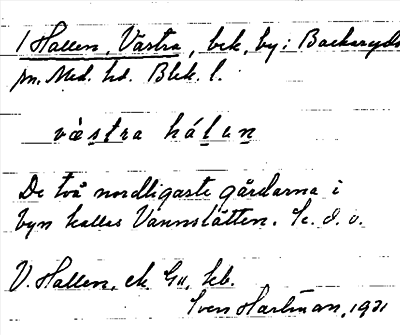 1 Hallen, Västra, bek, by i Backaryds
sn. Med. hd. Blek. l.
væstra hálen
De två nordligaste gårdarna i
byn kallas Vannslätten.
V. Hallen, ek. Gk, kb.
Sven Hartman, 1931